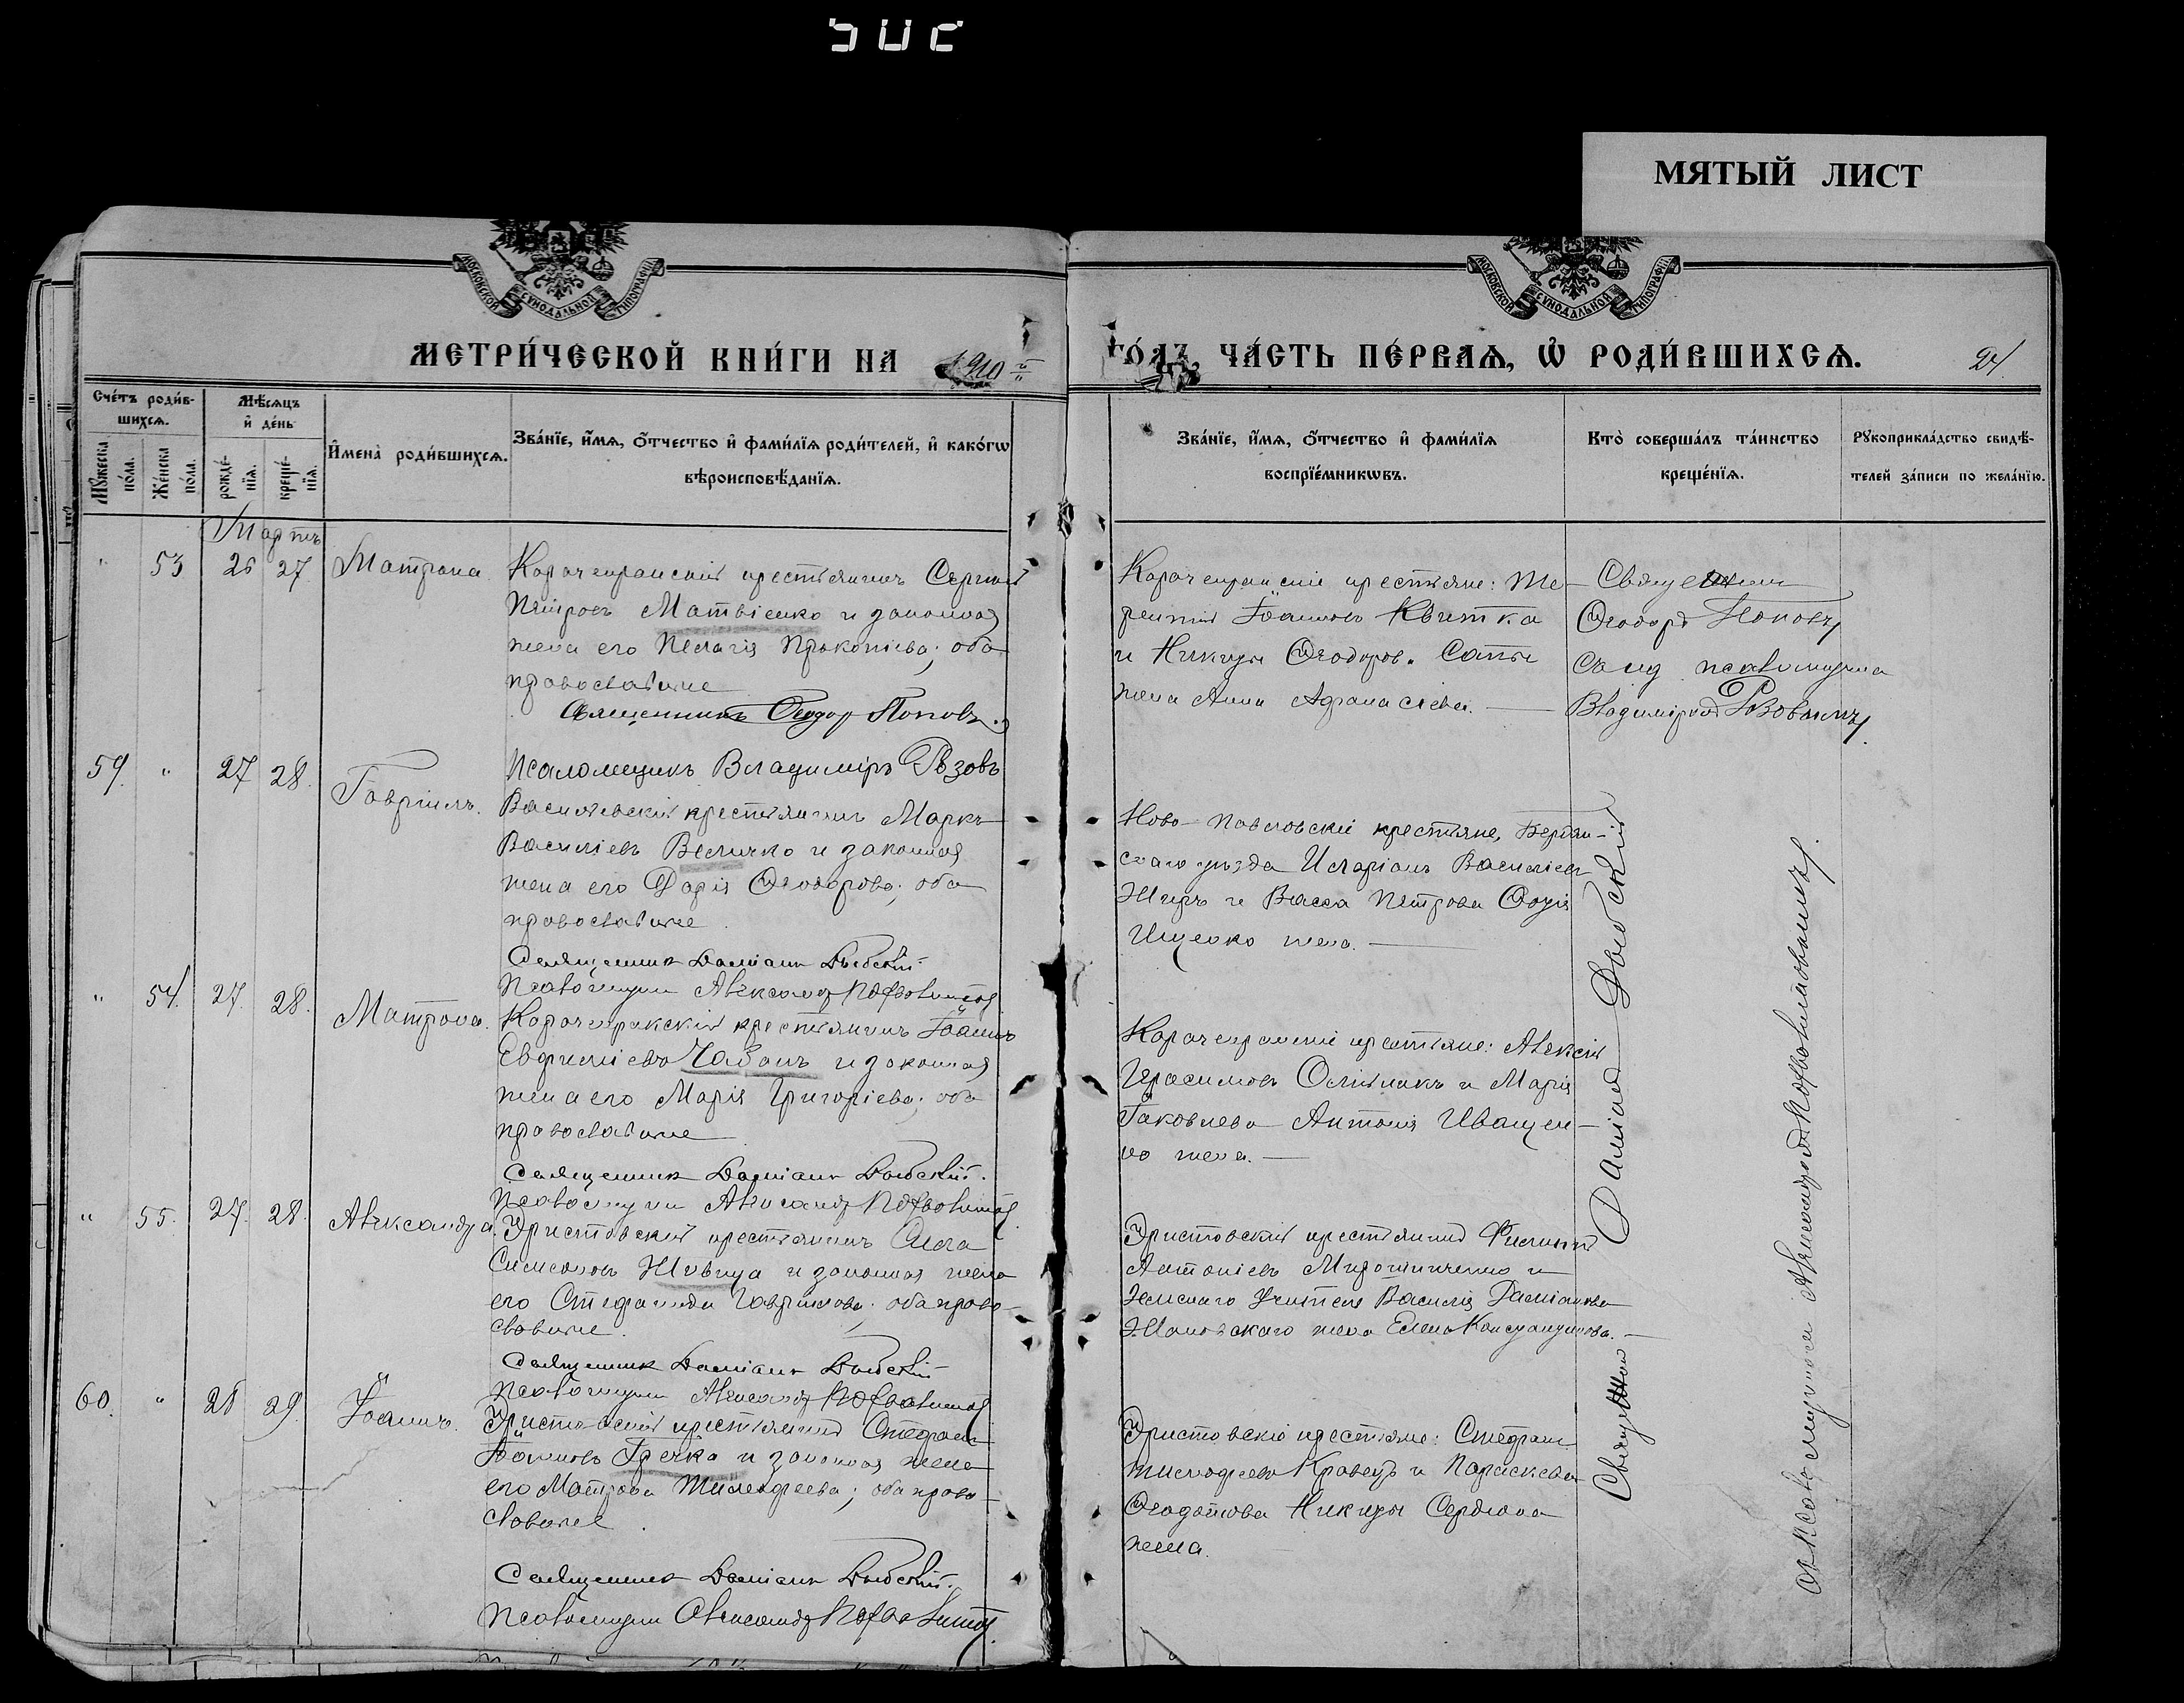 МЯТЫЙ ЛИСТ
МОСКОВСКОЙ СѴНОДАЛЬНОЙ ТИПОГРАФІИ
МОСКОВСКОЙ СѴНОДАЛЬНОЙ ТИПОГРАФІИ
МЕТРИ́ЧЕСКОЙ КНИ́ГИ НА 1910 й
ГО́ДЪ, ЧА́СТЬ ПЕ́РВАѦ, Ѡ҆ РОДИ́ВШИХСѦ.
24.
Сче́тъ роди́в-
шихсѧ.
Мѣ́сѧцъ
и҆ де́нь
Мꙋ́жеска
по́ла.
Же́нска
по́ла.
рожде́-
нїѧ.
креще́-
нїѧ.
И҆мена̀ роди́вшихсѧ.
Зва́нїе, и҆́мѧ, ѻ҆́тчество и҆ фами́лїѧ роди́телей, и҆ како́гѡ
вѣроисповѣ́данїѧ.
Зва́нїе, и҆́мѧ, ѻ҆́тчество и҆ фами́лїѧ
воспрїе́мникѡвъ.
Кто̀ соверша́лъ та́инство
креще́нїѧ.
Рꙋкоприкла́дство свидѣ́-
телей за́писи по жела́нїю.
Мартъ
" 53 26 27 Матрона
Карачекракскій крестьянинъ Сергій
Петровъ Матвіенко и законная
жена его Пелагія Прокопіева; оба
православные
Священникъ Ѳеодор Поповъ.
Карачекракскіе крестьяне: Те-
рентій Іоанновъ Квитка
и Никиты Ѳеодоров.
жена Анна Афанасіева.
Священник
Ѳеодоръ Поповъ
съ псаломщика
Владиміромъ Рѣзовымъ
59. " 27 28. Гавріилъ.
Псаломщикъ Владиміръ Рѣзовъ
Васильевскій крестьянинъ Маркъ
Василіевъ Величко и законная
жена его Дарія Ѳеодорова; оба
православные
Священник Даміанъ
Псаломщик Александр
Ново-Павловскіе крестьяне, Бердян-
скаго уѣзда Иларіонъ Василіев
и Васса Петрова
Ищенко жена.
" 54. 27. 28. Матрона.
Карачекракскій крестьянинъ Іоаннъ
Евфиміевъ Чабанъ и законная
жена его Марія Григоріева; оба
православные
Священник Даміанъ
Псаломщик Александр
Карачекракскіе крестьяне: Алексій
Герасимовъ и Марія
Іаковлева Антонія Иващен-
ко жена.
" 55. 27. 28. Александра.
Эристовскій крестьянинъ
Симеоновъ и законная жена
его Стефанида Гавриилова; оба право-
славные.
Священник Даміанъ
Псаломщик Александр
Эристовскій крестьянинъ Филиппъ
Антоніевъ Мирошниченко и
Земскаго Учителя Василія Даміанова
жена Елена Константинова.
60. " 28 29. Іоаннъ.
Эристовскій крестьянинъ Стефанъ
Іоанновъ Гречка и законная жена
его Матрона Тимофеева; оба право-
славные
Священник Даміанъ
Псаломщик Александр
Эристовскіе крестьяне: Стефанъ
Тимофеевъ Кравецъ и Параскева
Ѳеодотова Никиты Сердюка
жена.
Священник Даміанъ
съ псаломщиком Александромъ